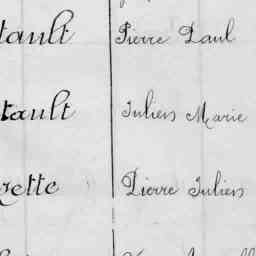 tault Pierre Paul
tault Julien Marie
rette Pierre Julien